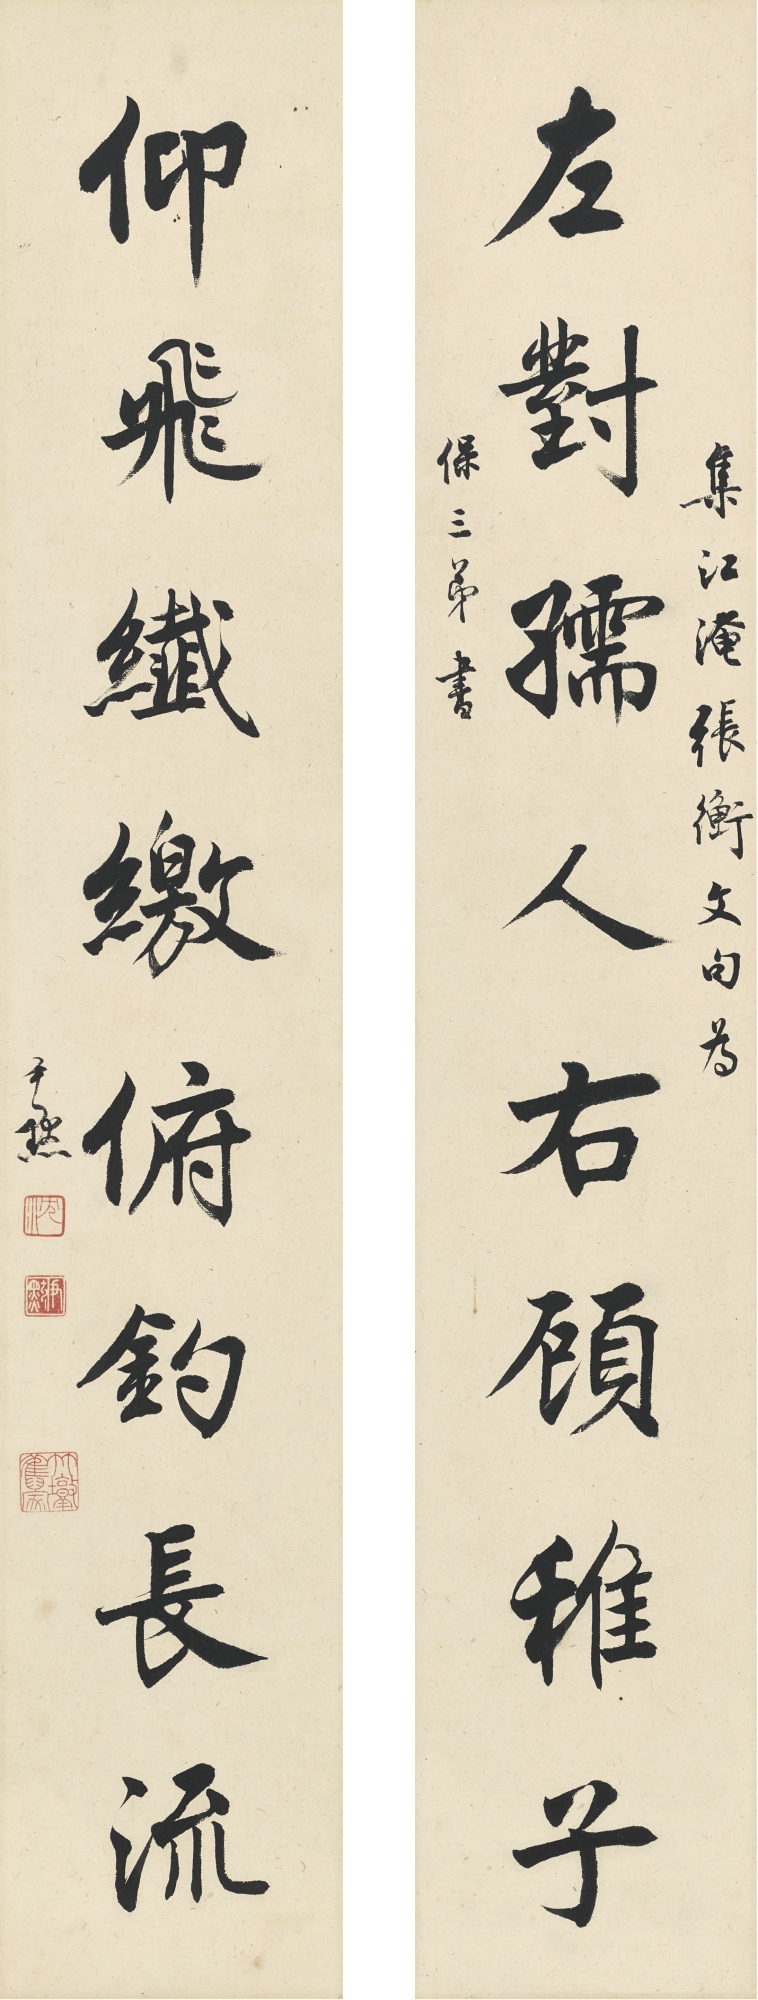 集江淹張衡文句為
左對孺人右顧稚子
保三弟書
仰飛纖繳俯釣長流
尹默
沈
尹默
竹墩舊家